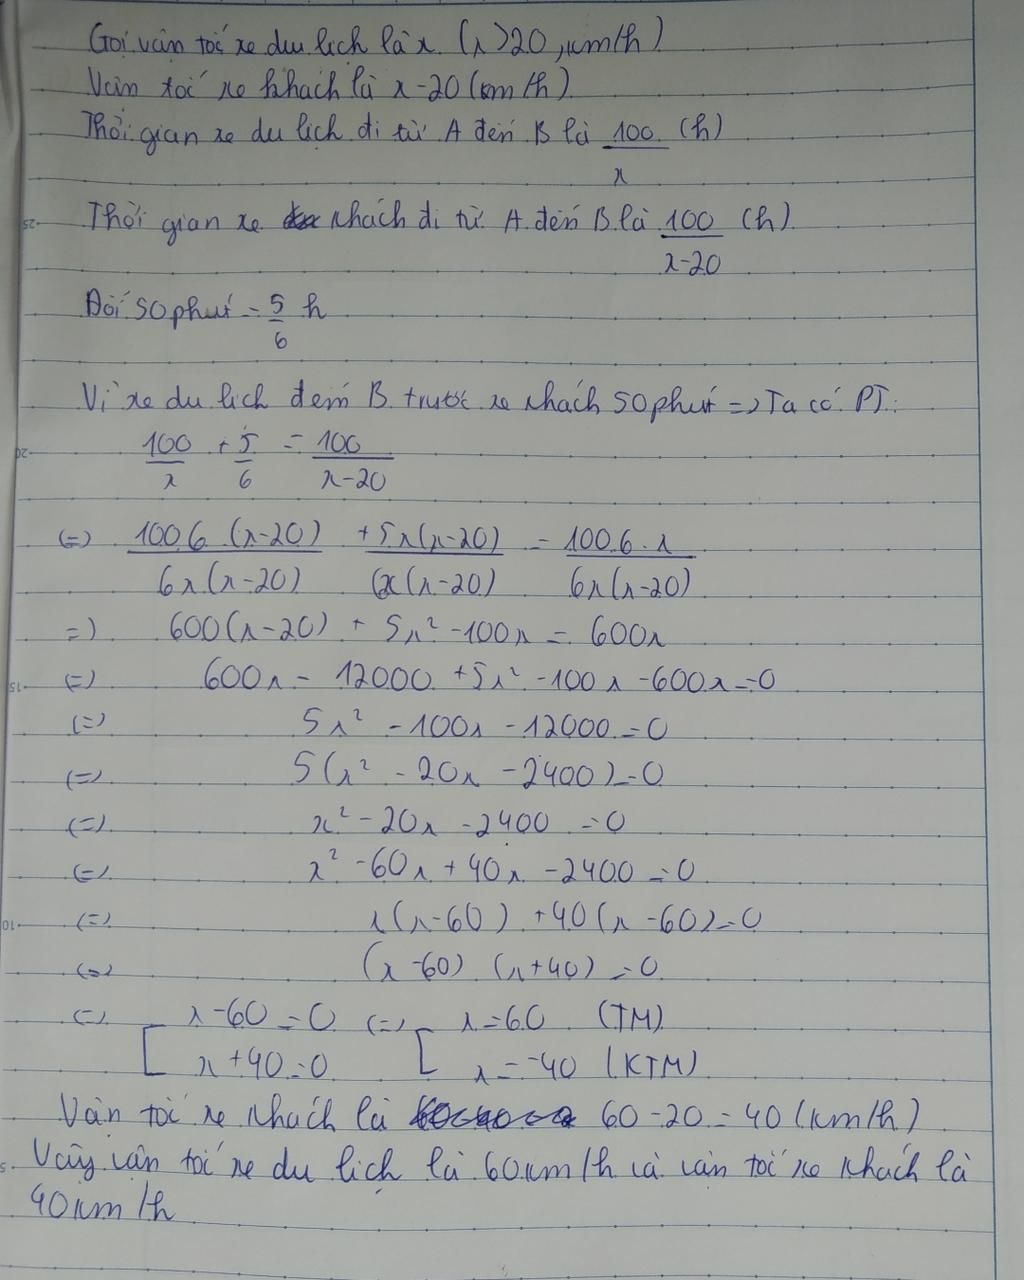 Gọi vận tốc xe du lịch là x (x>20, km/h)
Vận tốc xe khách là x-20 (km/h)
Thời gian xe du lịch đi từ A đến B là 100/x (h)
Thời gian xe khách đi từ A đến B là 100/(x-20) (h)
Đổi 50 phút = 5/6 h
Vì xe du lịch đến B trước xe khách 50 phút => Ta có PT:
100/x + 5/6 = 100/(x-20)
<=> 100.6.(x-20)/6x(x-20) + 5x(x-20)/6x(x-20) = 100.6.x/6x(x-20)
=> 600(x-20) + 5x² -100x = 600x
<=> 600x - 12000 +5x² -100x -600x =0
<=> 5x² -100x -12000 =0
<=> 5(x² -20x -2400) =0
<=> x² -20x -2400 =0
<=> x² -60x +40x -2400 =0
<=> x(x-60) +40(x-60) =0
<=> (x-60) (x+40) =0
<=> [ x-60=0 <=> [ x=60 (TM)
x+40=0 x=-40 (KTM)
Vận tốc xe khách là 60-20=40 (km/h)
Vậy vận tốc xe du lịch là 60km/h và vận tốc xe khách là
40km/h
25
20
15
10
5